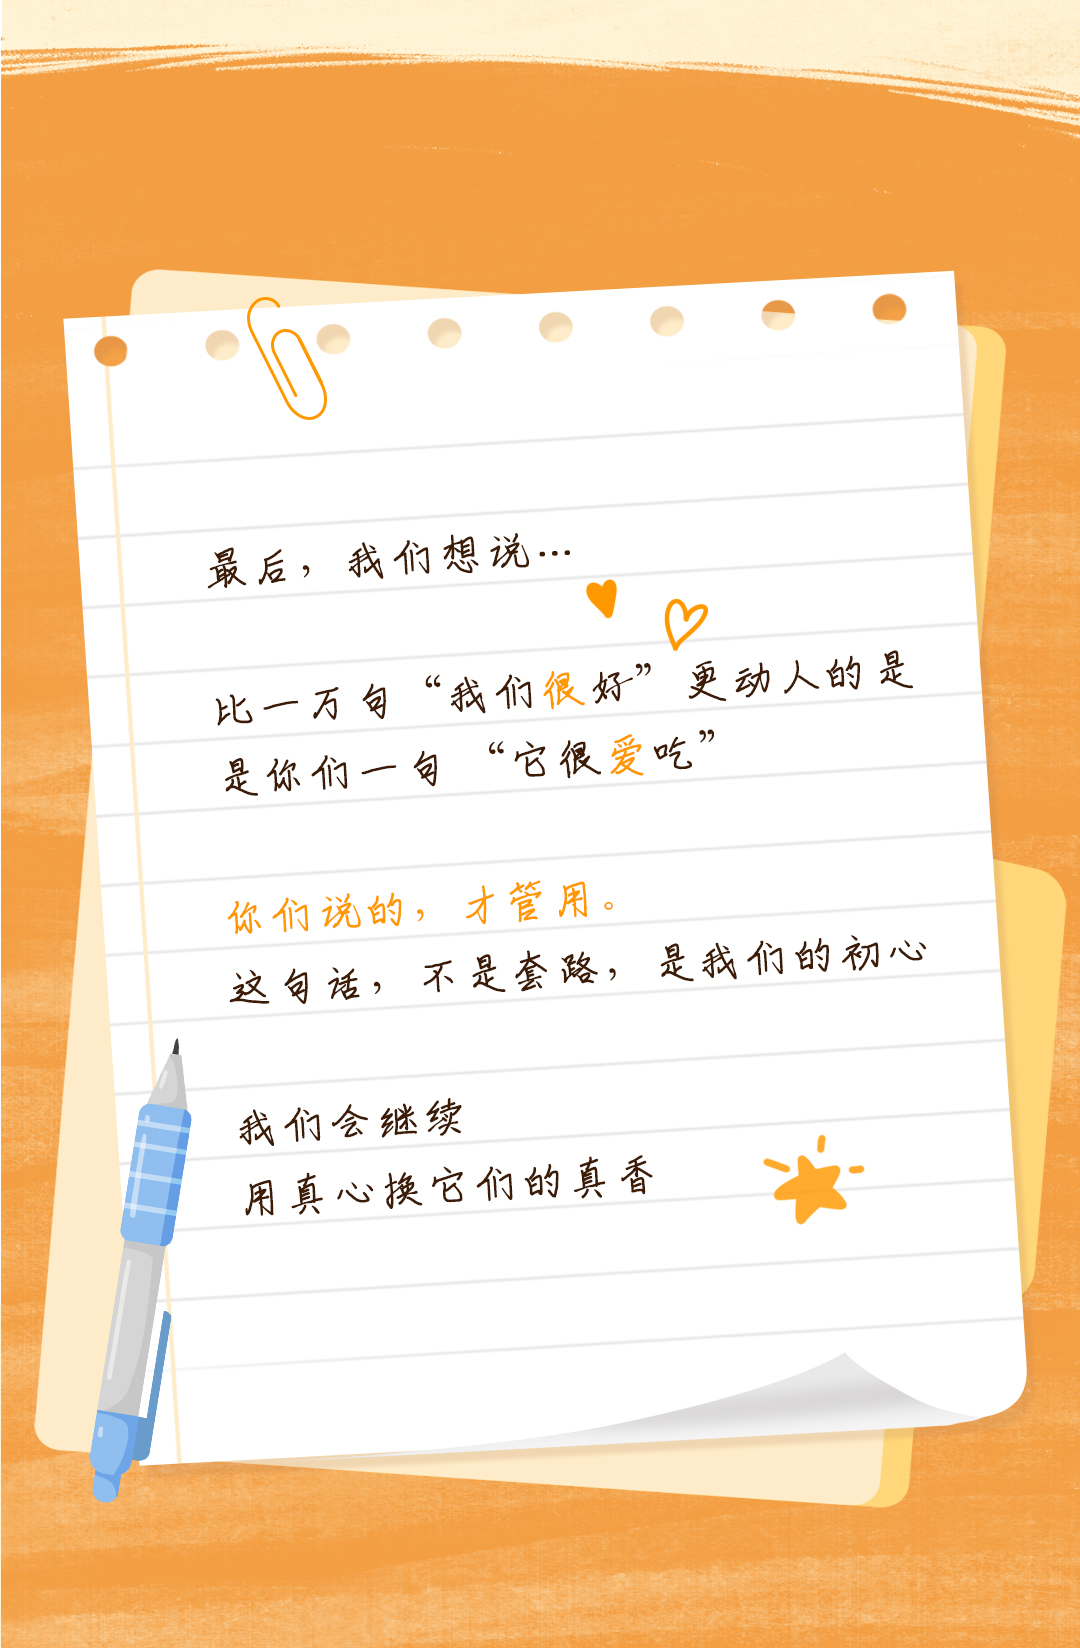 最后，我们想说…
比一万句“我们很好”更动人的是
是你们一句“它很爱吃”
你们说的，才管用。
这句话，不是套路，是我们的初心
我们会继续
用真心换它们的真香